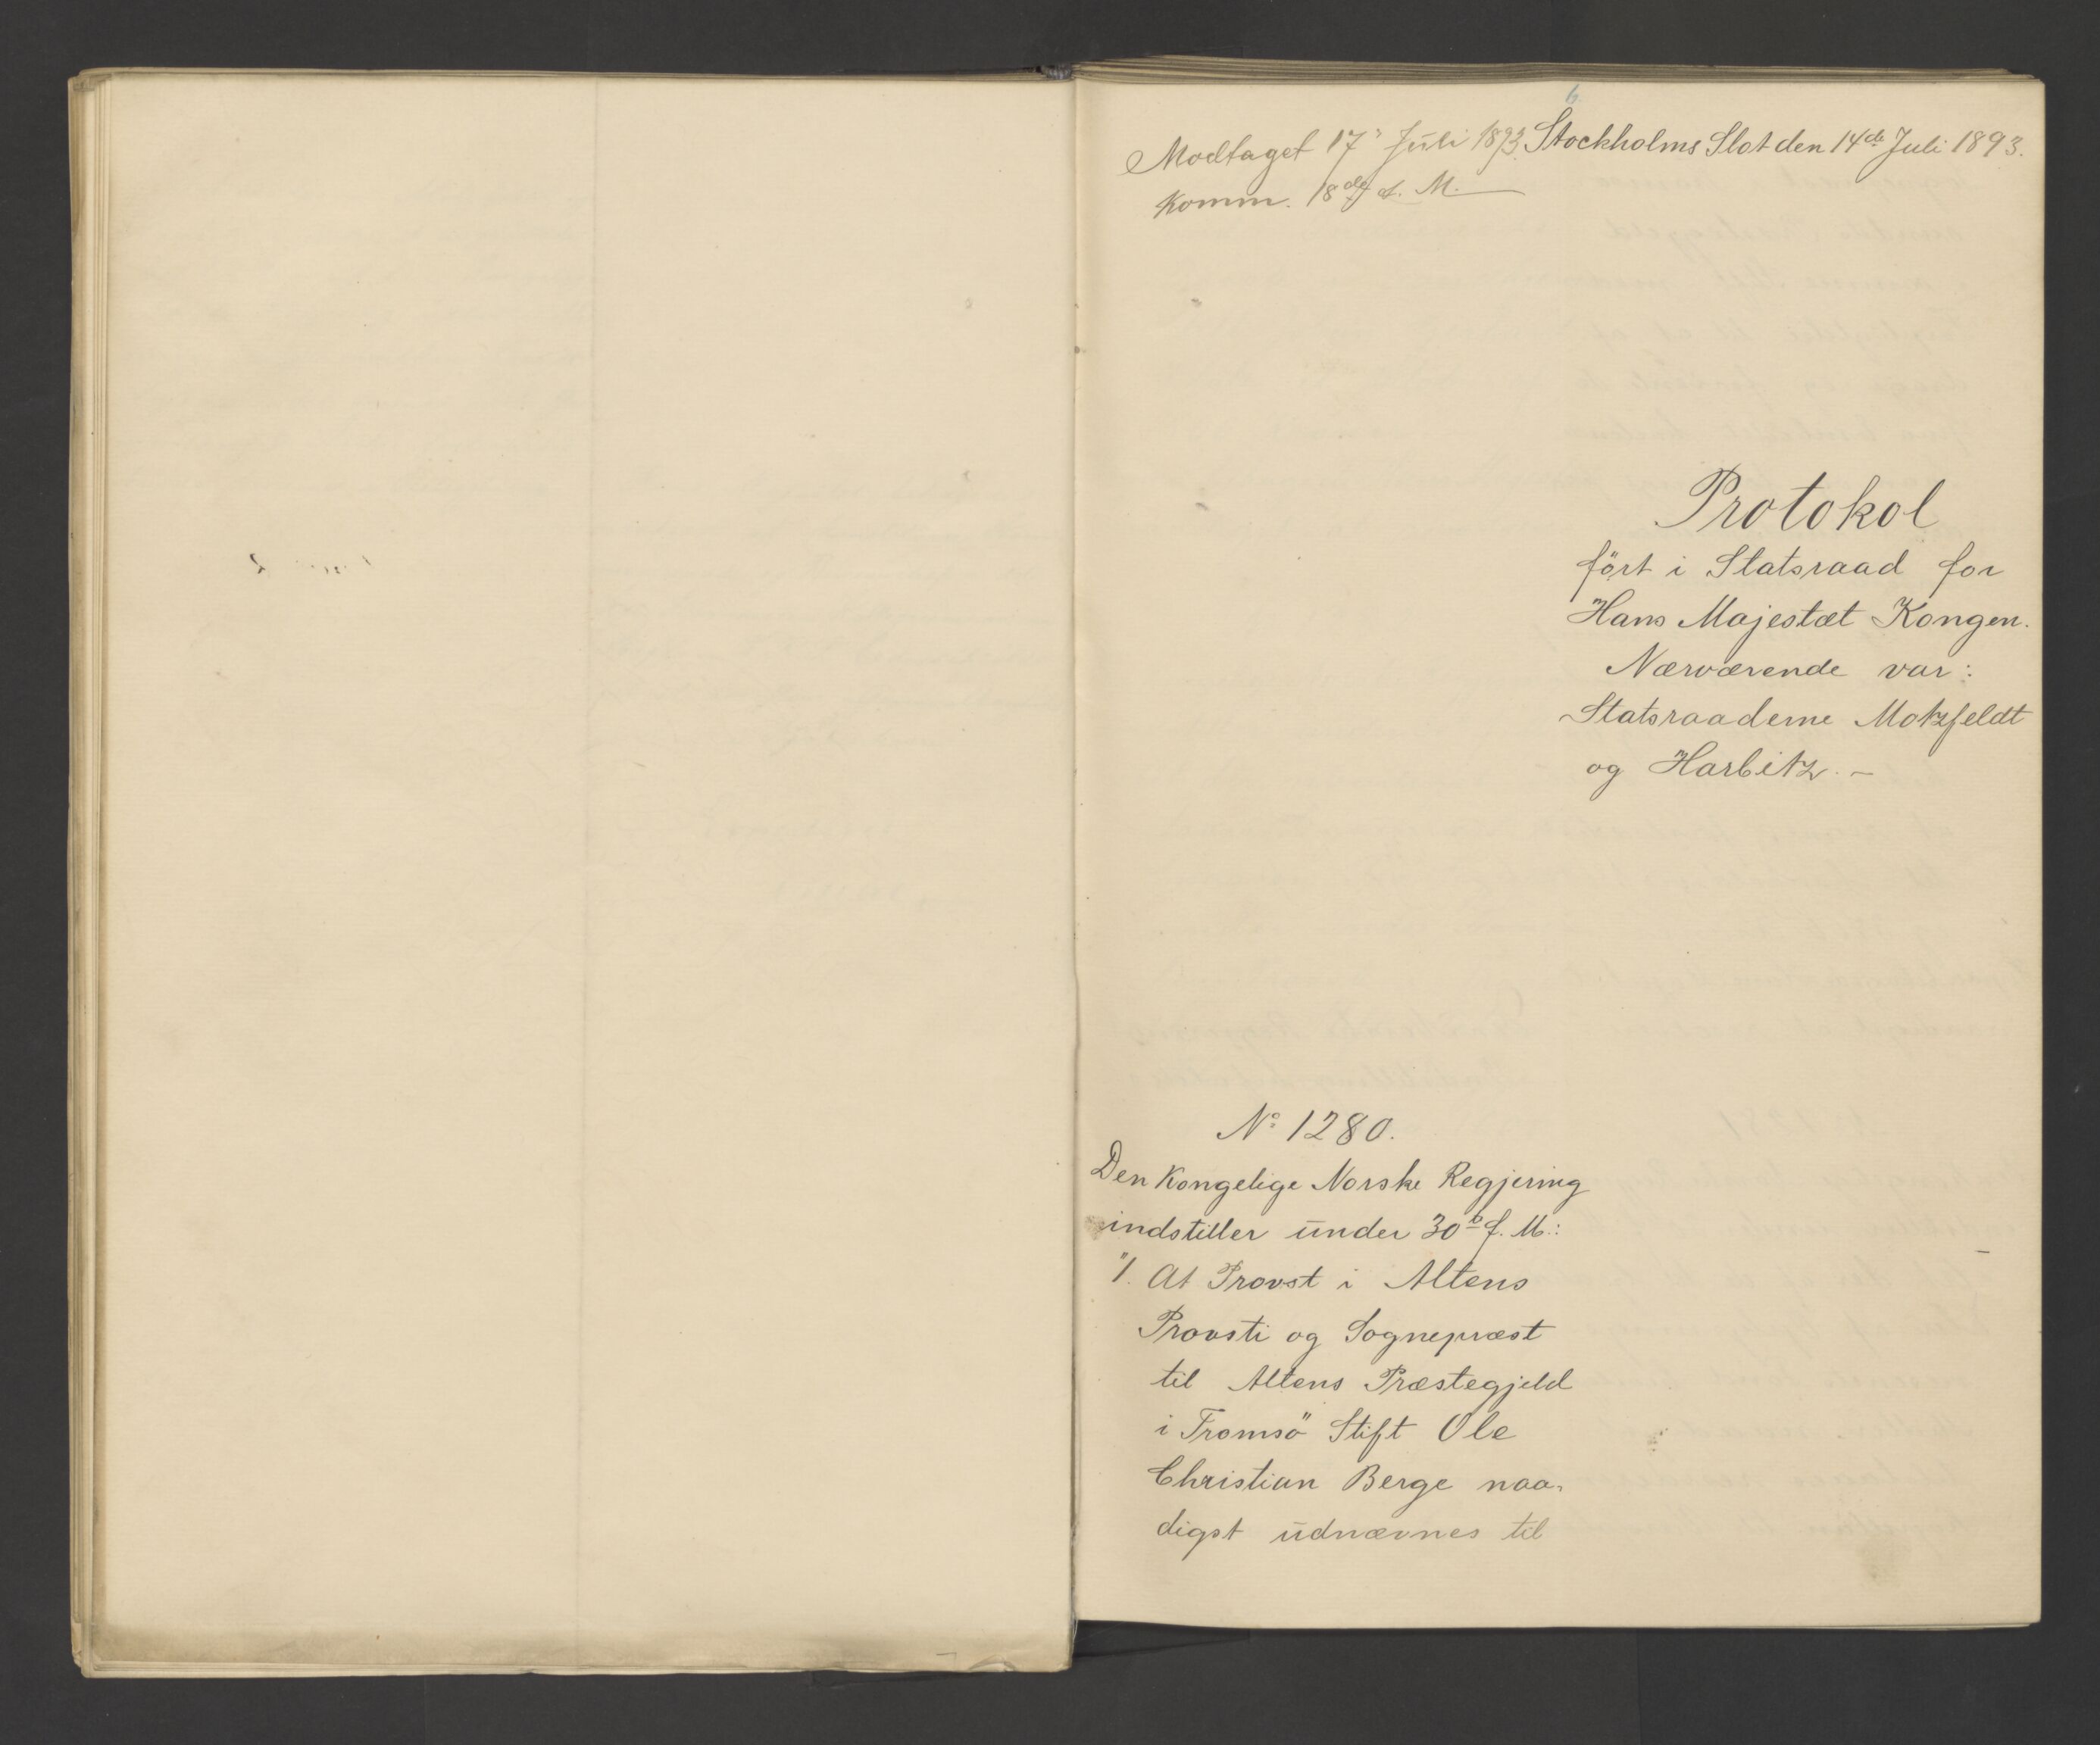 6.
Modtaget 17' Juli 1893.
Komm. 18de s. M.
Stockholms Slot den 14de Juli 1893.
Protokol
fört i Statsraad for
Hans Majestæt Kongen.
Nærværende var:
Statsraaderne Motzfeldt
og Harbitz. –
No 1280.
Den Kongelige Norske Regjering
indstiller under 30te f. M.:
"1. At Provst i Altens
Provsti og Sognepræst
til Altens Præstegjeld
i Tromsö Stift Ole
Christian Berge naa-
digst udnævnes til